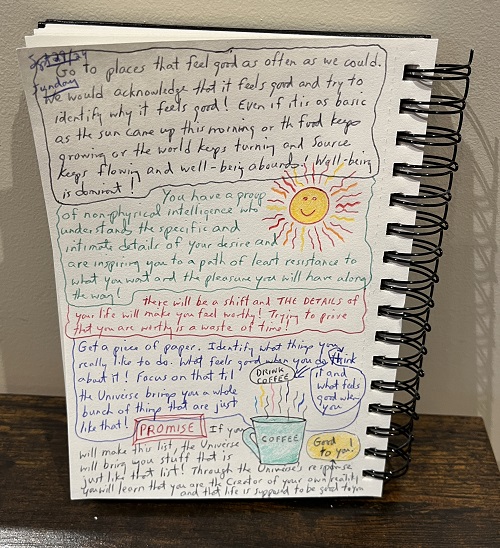 Sunday
Go to places that feel good as often as we could.
We would acknowledge that it feels good and try to
identify why it feels good! Even if it is as basic
as the sun came up this morning or th food keeps
growing or the world keeps turning and Source
keeps flowing and well-being abounds! Well-being
is dominant!
You have a group
of nonphysical intelligence who
understands the specific and
intimate details of your desire and
are inspiring you to a path of least resistance to
what you want and the pleasure you will have along
the way!
there will be a shift and THE DETAILS of
your life will make you feel worthy! Trying to prove
that you are worthy is a waste of time!
Get a piece of paper. Identify what things you
really like to do. What feels good when you do think
about it! Focus on that til
the Universe brings you a whole
bunch of things that are just
like that!
DRINK
COFFEE
it and what feels
good when
you
PROMISE If you
will make this list, the Universe
will bring you stuff that is
just like that list! Through the Universe's response
you will learn that you are the Creator of your own reality
and that life is supposed to be good to you
COFFEE
Good
to you!